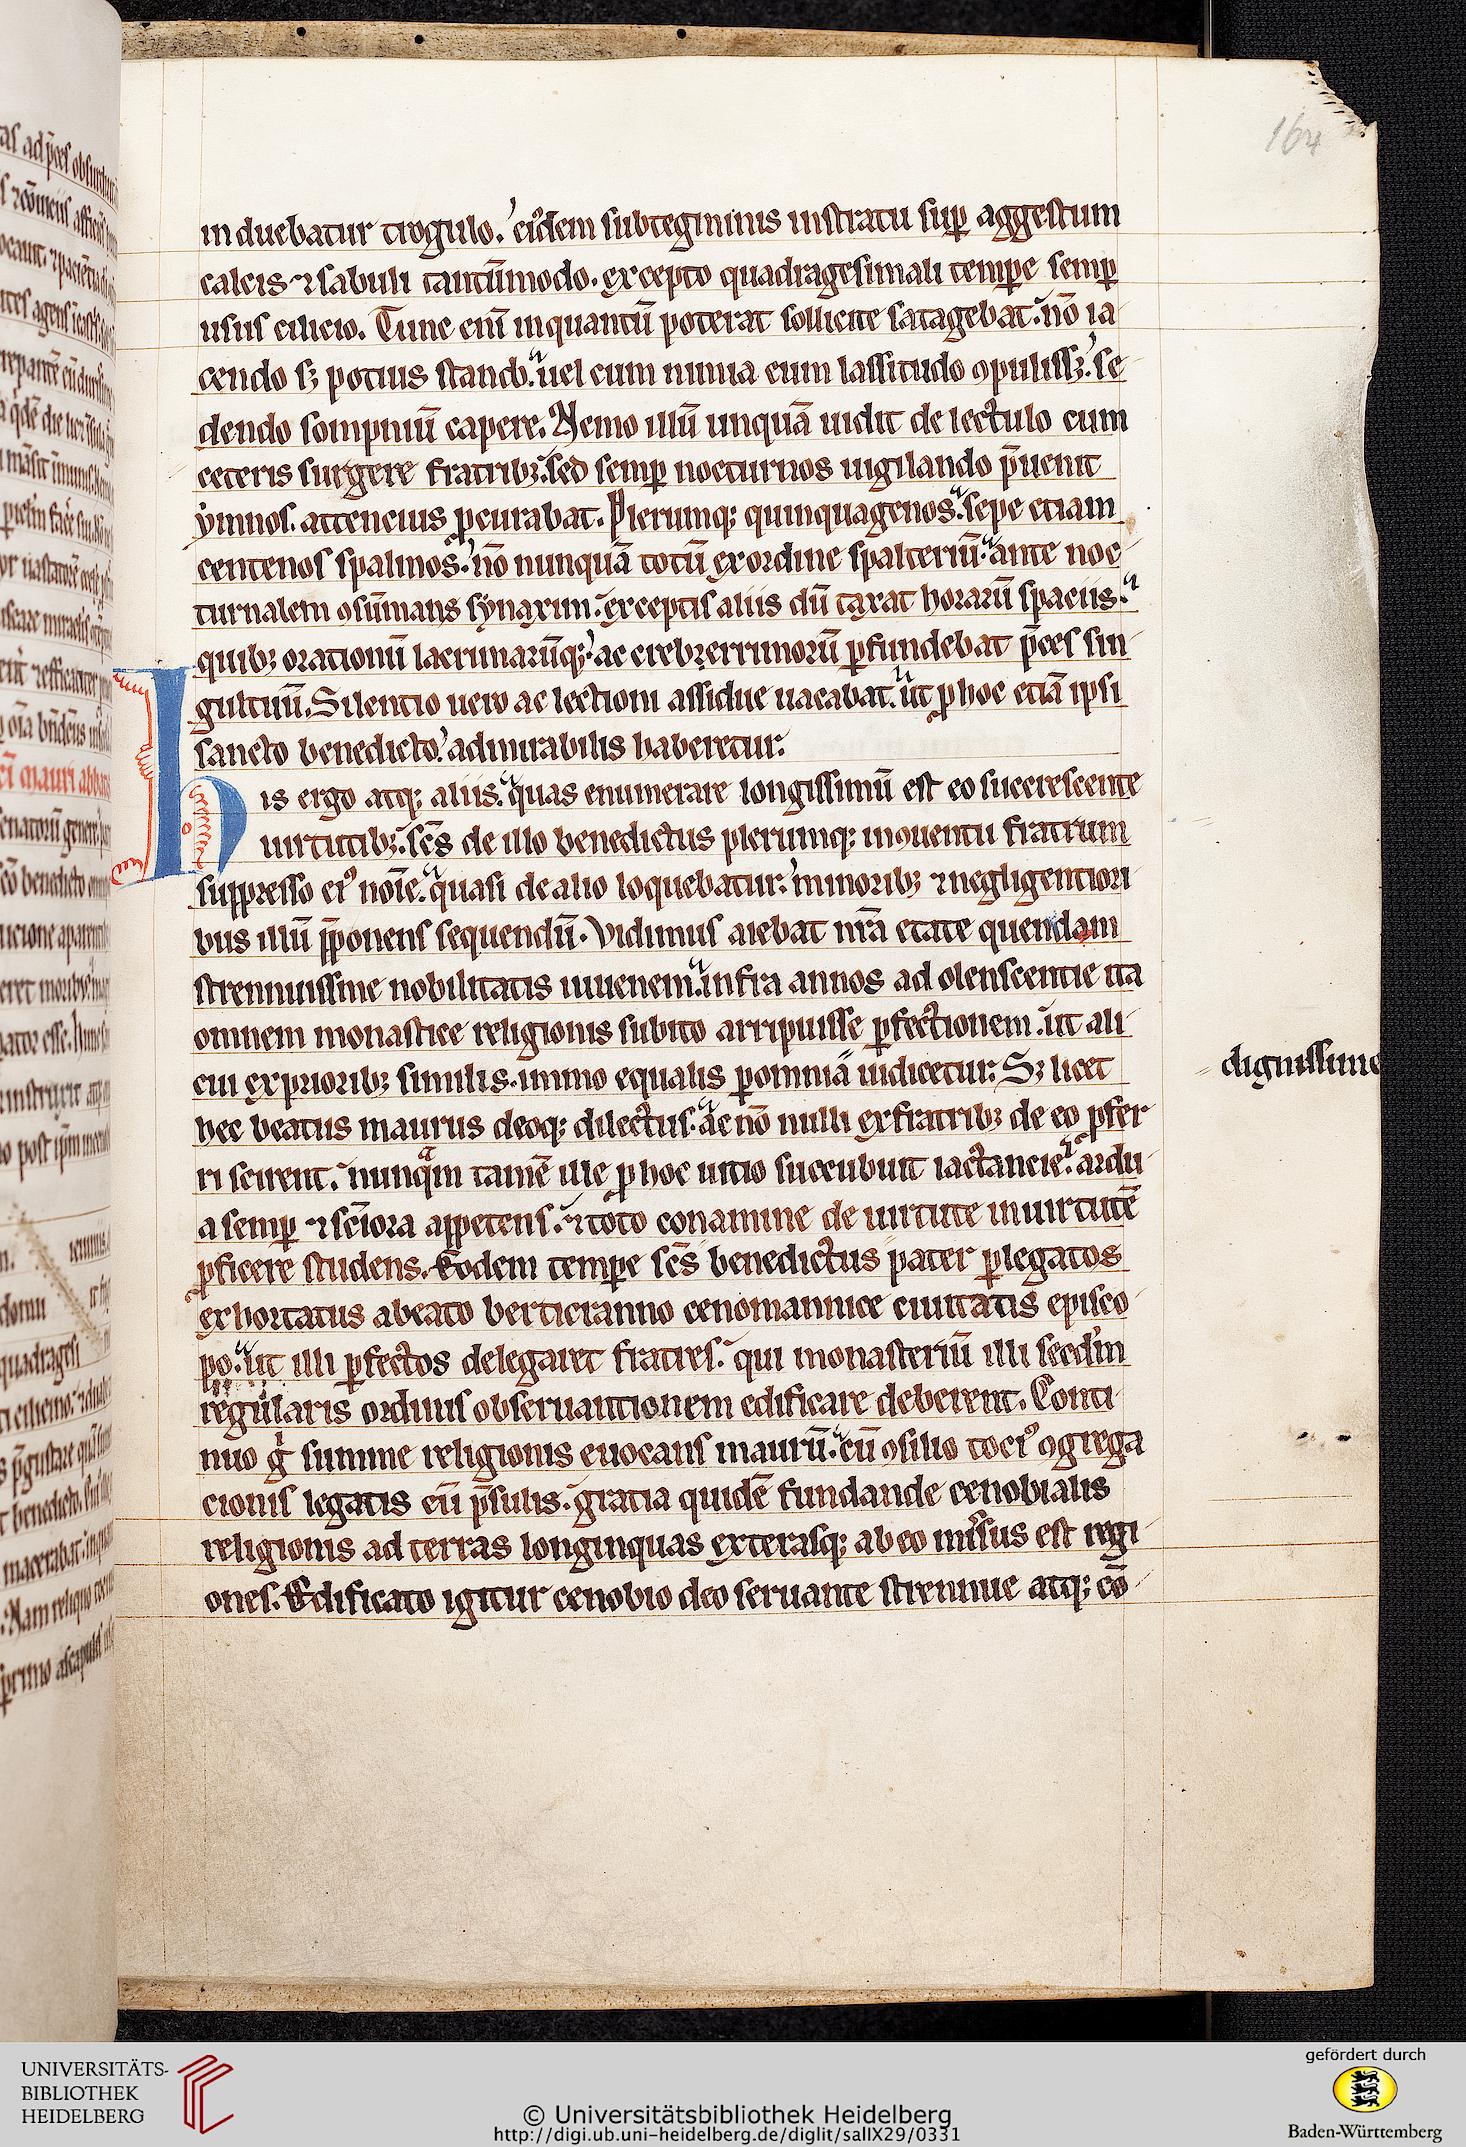 164
induebatur trogulo. eiꝰdem subtegminis instratu suꝑ aggestum
calcis ⁊ sabuli tantūmodo. excepto quadragesimali temꝑe semꝑ
usus cilicio. Tunc eni͂ inquantū poterat sollicite satagebat. nō ia
cendo sꝫ potius standoˢ. uel cum nimia eum lassitudo ꝯpulissꝫ. se
dendo sompniū capere. Nemo illū unquā uidit de lectulo cum
ceteris surgere fratribꝫ. sed semꝑ nocturnos uigilando p̄uenit
ẏmnos. attencius ꝓcurabat. Plerumqꝫ quinquagenos. sepe etiam
centenos spalmos. nō nunquā totū exordine spalteriū. ante noc
turnalem ꝯsūmans sẏnaxim. exceptis aliis dū taxat horarū spaciis.
quibꝫ orationū lacrimarūqꝫ. ac crebrerrimorū ꝓfundebat p̄ces sin
gultuū. Silentio uero ac lectioni assidue uacabat. ut ꝑ hoc etiā ipsi
sancto benedicto. admirabilis haberetur.
His ergo atqꝫ aliis. quas enumerare longissimū est eo succrescente
uirtutibꝫ. sc̄s de illo benedictus plerumqꝫ inꝯuentu fratrum
suppresso eiꝰ noīe. quasi de alio loquebatur. minoribꝫ ⁊ negligentiori
bus illū p̄ponens sequendū. Vidimus aiebat nr̄a etate quendam
strennuissime nobilitatis iuuenem. infra annos ad olenscentie ita
omnem monastice religionis subito arripuisse ꝑfectionem. ut ali
cui exprioribꝫ similis. immo equalis ꝑomnia uidicetur. Sꝫ licet
dignissime
hec beatus maurus deoqꝫ dilectus. ac nō nulli exfratribꝫ de eo ꝓfer
ri scirent. nunqᵃm tamē ille ꝑ hoc uitio succubuit iactancie. ardu
a semꝑ ⁊ sc̄iora appetens. ⁊ toto conamine de uirtute inuirtutē
ꝓficere studens. Eodem temꝑe sc̄s benedictus pater ꝑlegatos
exhortatus abeato berticranno cenomannice ciuitatis episco
po. ut illi ꝑfectos delegaret fratres. qui monasteriū illi secd̄m
regularis ordinis obseruantionem edificare deberent. Conti
nuo gͥ summe religionis euocans maurū. cū ꝯsilio tociꝰ ꝯgrega
cionis legatis cū p̄sulis. gratia quidē fundande cenobialis
religionis ad terras longinquas exterasqꝫ ab eo missus est regi
ones. Edificato igitur cenobio deo seruante strennue atqꝫ cō
UNIVERSITÄTS-
BIBLIOTHEK
HEIDELBERG
© Universitätsbibliothek Heidelberg
http://digi.ub.uni-heidelberg.de/diglit/salIX29/0331
gefördert durch
Baden-Württemberg